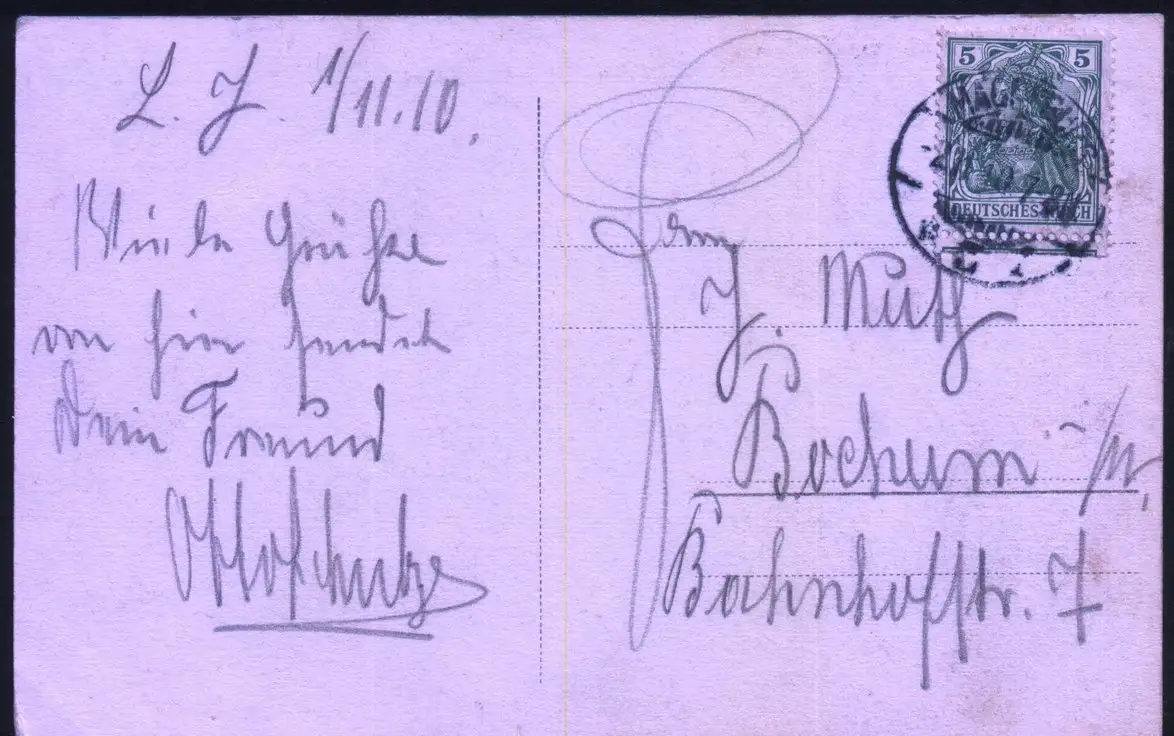 L. J. 1/11.10.
Viele Grüße
von hier sendet
Dein Freund
Otto Schulze
Herrn
J. Muth
Bochum i/W.
Bahnhofstr. 7
5 5
DEUTSCHES REICH